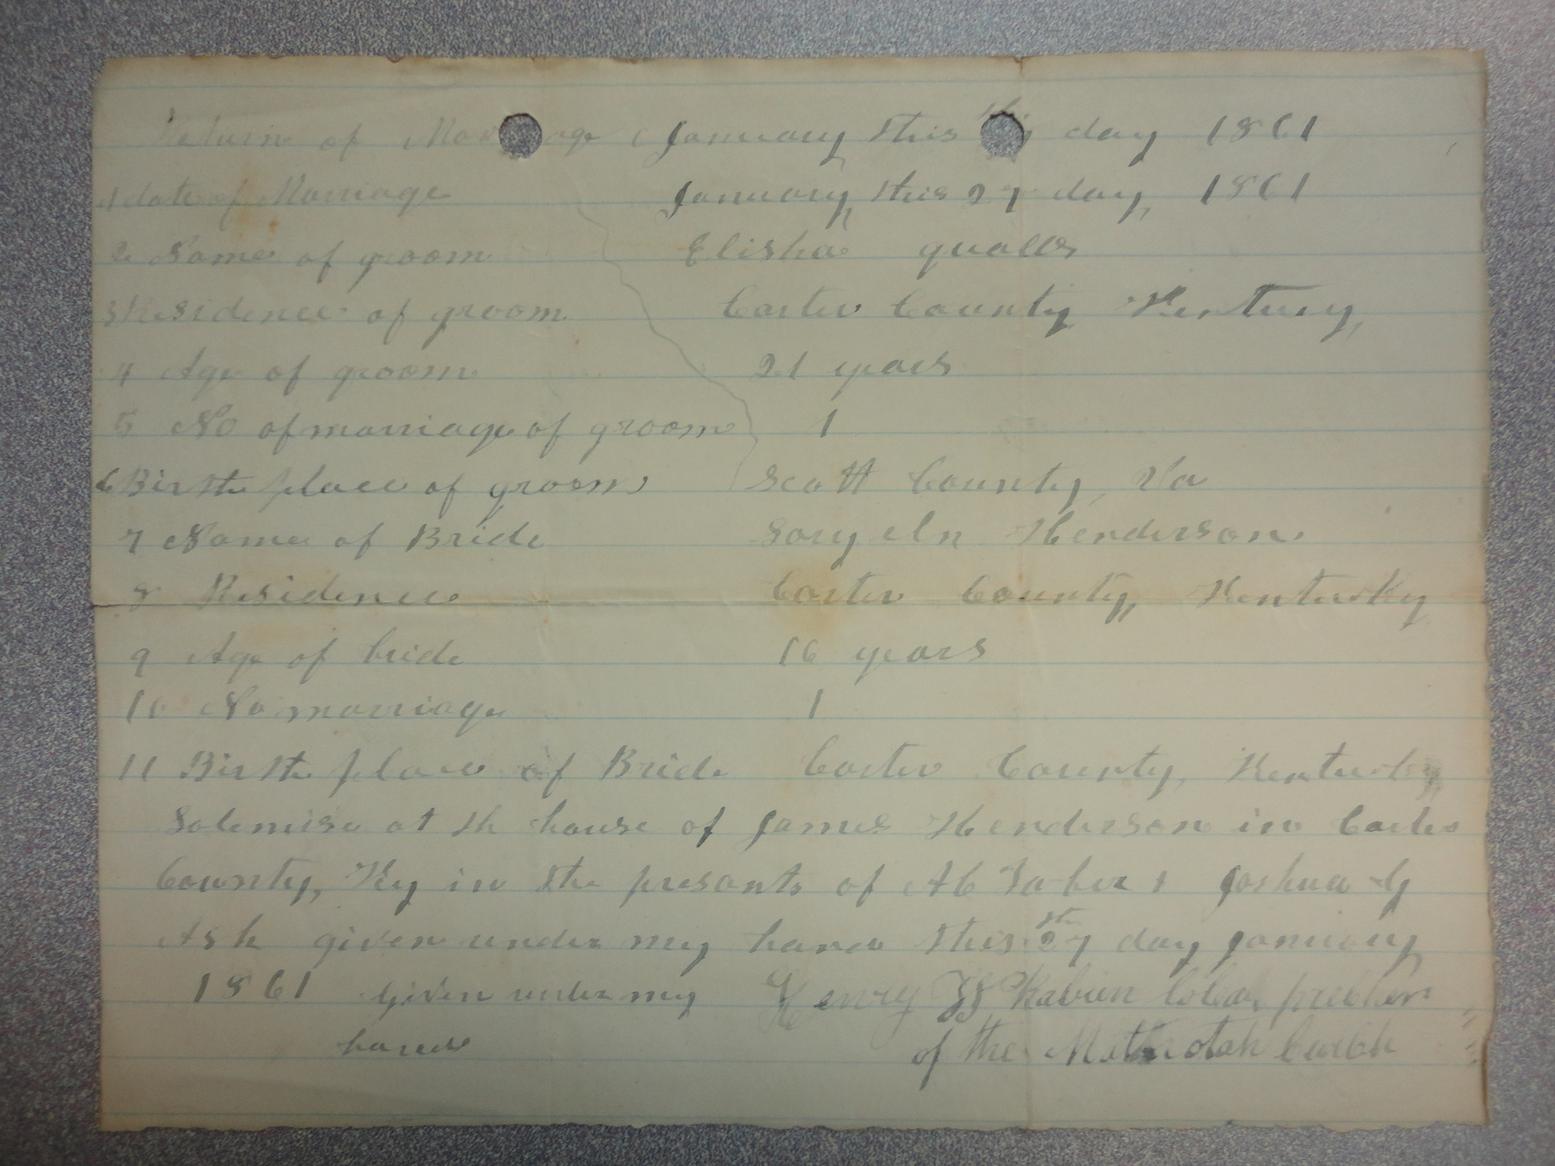 Return of Marriage January this day 1861
1 date of Marriage January this 27 day, 1861
2 Name of groom Elisha qualls
3 Residence of groom Carter County Kentucy,
4 Age of groom 21 years
5 No of marriage of groom 1
6 Birth place of groom Scott County, Va
7 Name of Bride Sary An Henderson
8 Residence Carter County, Kentucky
9 Age of bride 16 years
10 No marriage 1
11 Birth place of Bride Carter County, Kentucky
Solemise at th house of James Henderson in Carter
County, Ky in the presants of Joshua
Ash given under my hand this 27th day January
1861 given under my Henry precher
hand of the